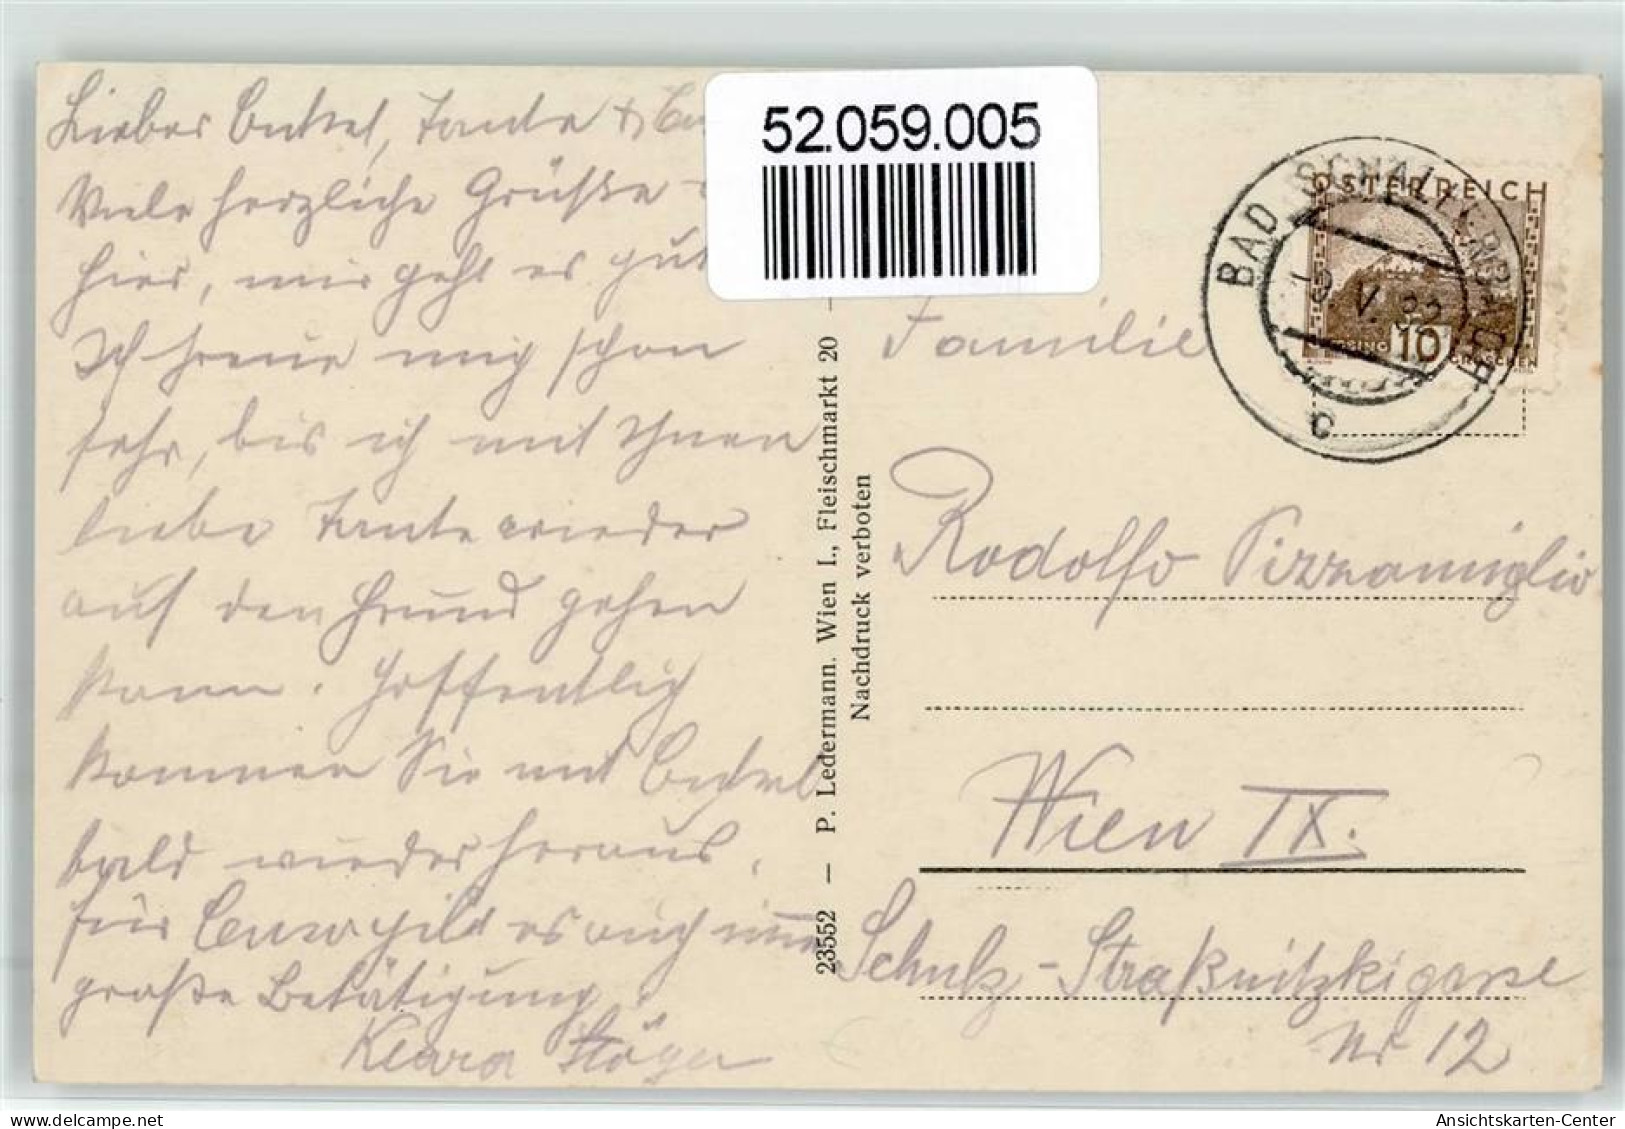 Lieber Onkel, Tante &
Viele herzliche Grüße
hier, mir geht es gut
Ich freue mich schon
sehr, bis ich mit Ihnen
liebe Tante wieder
auf den Grund gehen
kann. Hoffentlich
kommen Sie mit Onkel
bald wieder heraus.
für gibt es auch
große Betätigung.
Klara Stöger
52.059.005
23552 — P. Ledermann. Wien I., Fleischmarkt 20
Nachdruck verboten
ÖSTERREICH
10
GROSCHEN
BAD SCHALLERBACH
V.
c
Familie
Rodolfo Pizzamiglio
Wien IX.
Schulz-Straßnitzkigasse
Nr 12
Ansichtskarten-Center